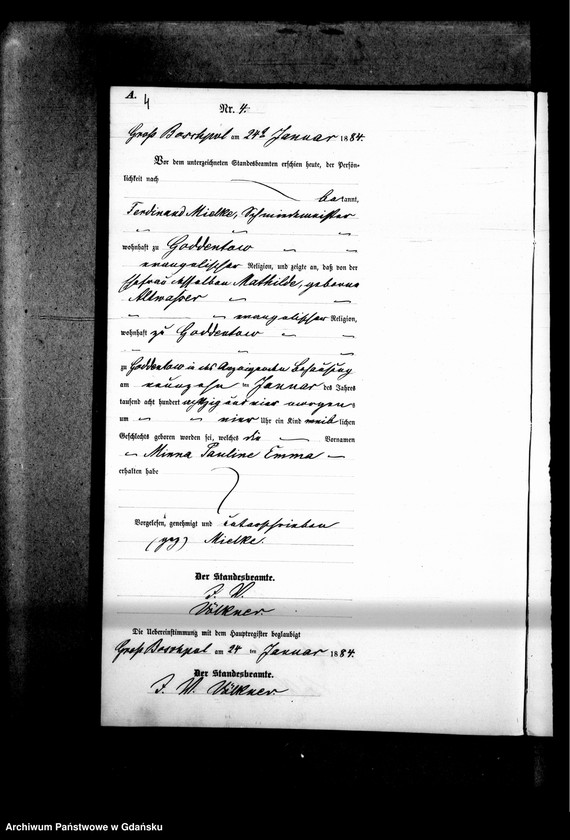 A. 4
Nr. 4.
Groß Boschpol am 24ⁿ Januar 1884.
Vor dem unterzeichneten Standesbeamten erschien heute, der Persön-
lichkeit nach
bekannt,
Ferdinand Mielke, Schmiedemeister
wohnhaft zu Goddentow
evangelischer Religion, und zeigte an, daß von der
Ehefrau desselben Mathilde, geborene
Altwasser
evangelischer Religion,
wohnhaft zu Goddentow
zu Goddentow in des Anzeigenden Behausung
am neunzehn ten Januar des Jahres
tausend acht hundert achtzig und vier morgens
um vier Uhr ein Kind weiblichen
Geschlechts geboren worden sei, welches die Vornamen
Minna Pauline Emma
erhalten habe
Vorgelesen, genehmigt und unterschrieben
(gez) Mielke.
Der Standesbeamte.
I. V.
Völkner.
Die Uebereinstimmung mit dem Hauptregister beglaubigt
Groß Boschpol am 24 ten Januar 1884.
Der Standesbeamte.
I. V. Völkner
Archiwum Państwowe w Gdańsku